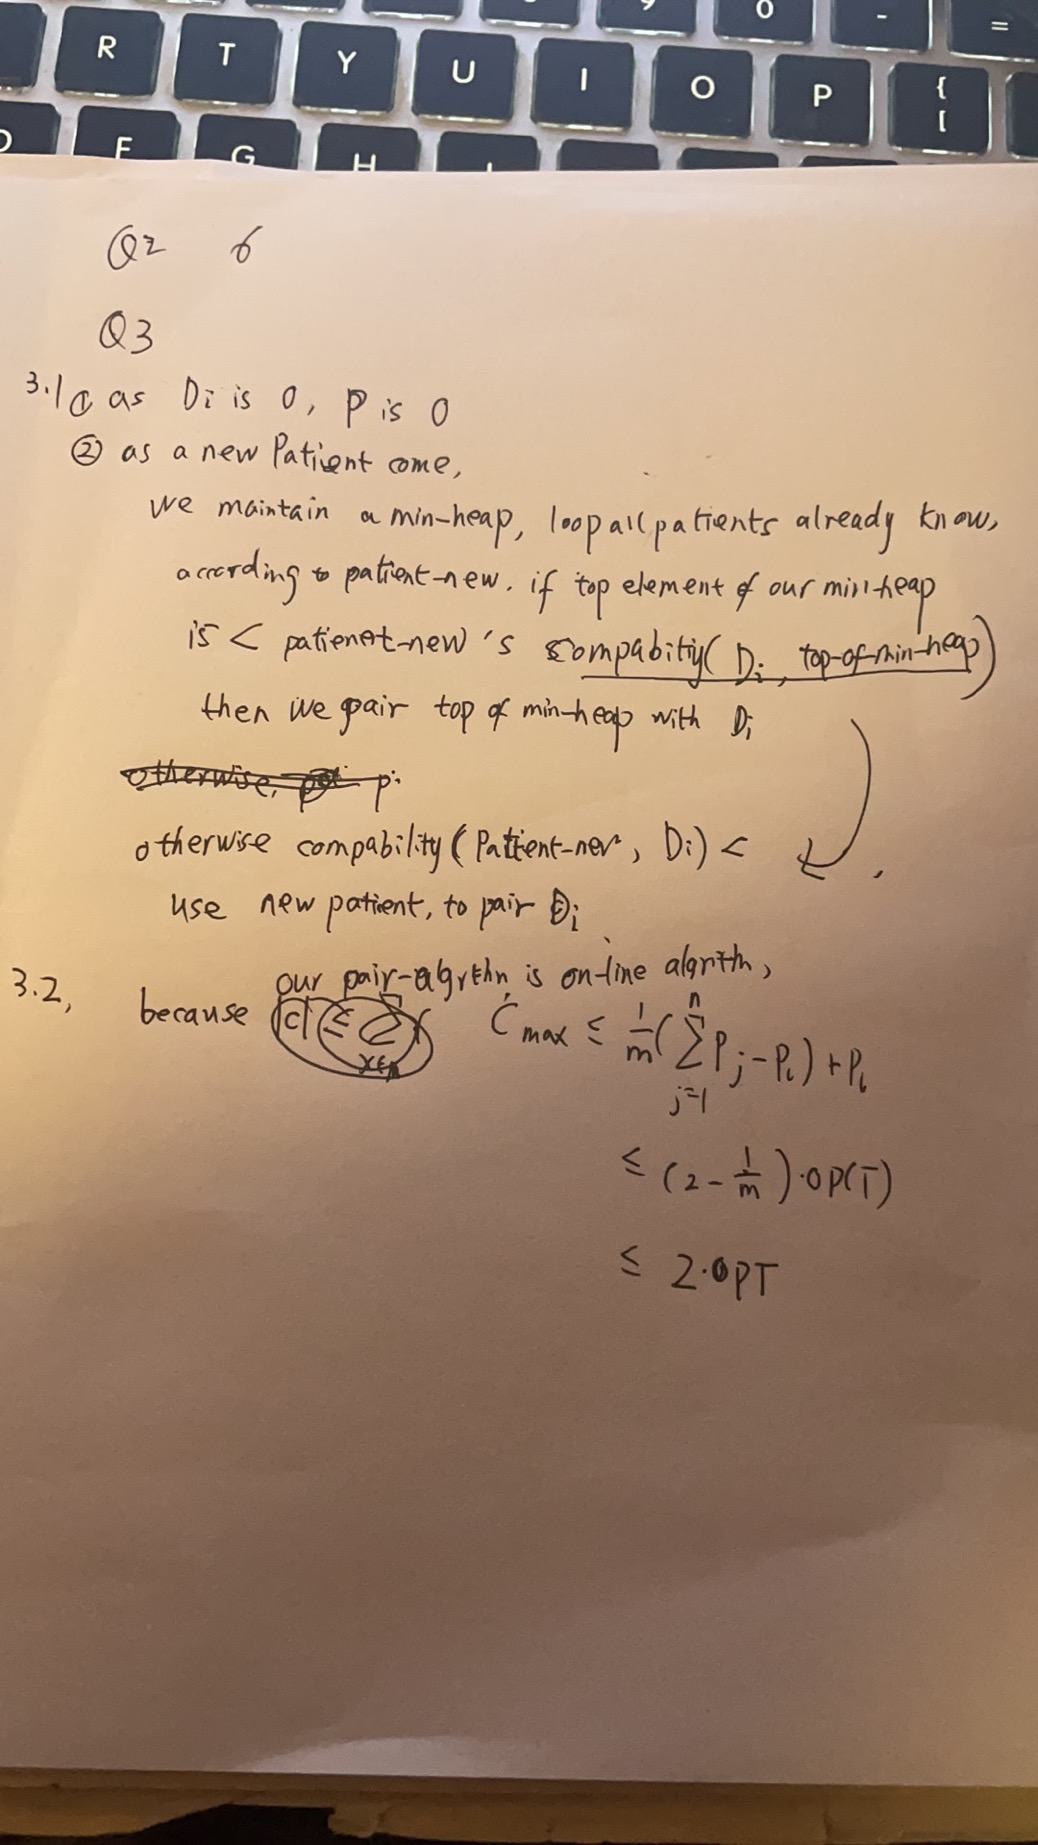 0 - =
R T Y U I O P { [
F G H
Q2 6
Q3
3.1 ① as Di is 0, P is 0
② as a new Patient come,
we maintain a min-heap, loop all patients already know,
according to patient-new. if top element of our min-heap
is < patienet-new's compabitiy( Di, top-of-min-heap)
then we pair top of min-heap with Di
otherwise, p
otherwise compability ( Pattent-new, Di) <
use new patient, to pair Di
3.2, our pair-algrthn is on-line algrithm,
because |c| ≤ Σ x∈n Cmax ≤ 1/m ( Σ j=1 n Pj - Pi ) + Pi
≤ (2 - 1/m) · OP(T)
≤ 2·OPT